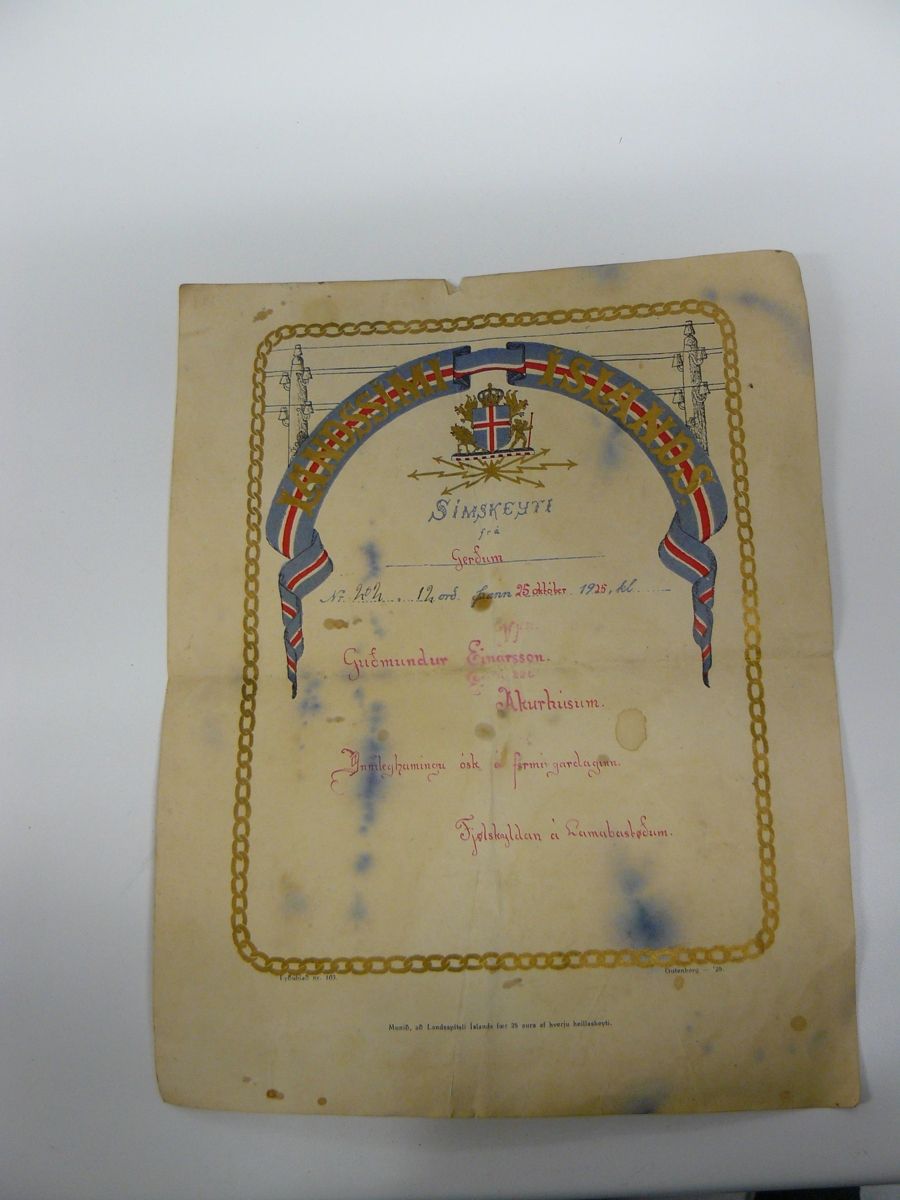 LANDSSÍMI ÍSLANDS
SÍMSKEYTI
frá
Gerðum
Nr. 202. 12 orð. þann 25 október 1925, kl.
Guðmundur Einarsson.
Akurhúsum.
Ynnileghamingu ósk á fermingardaginn.
Fjølskyldan á Lamabastøðum.
Eyðublað nr. 103.
Gutenberg — '25.
Munið, að Landsspítali Íslands fær 25 aura af hverju heillaskeyti.